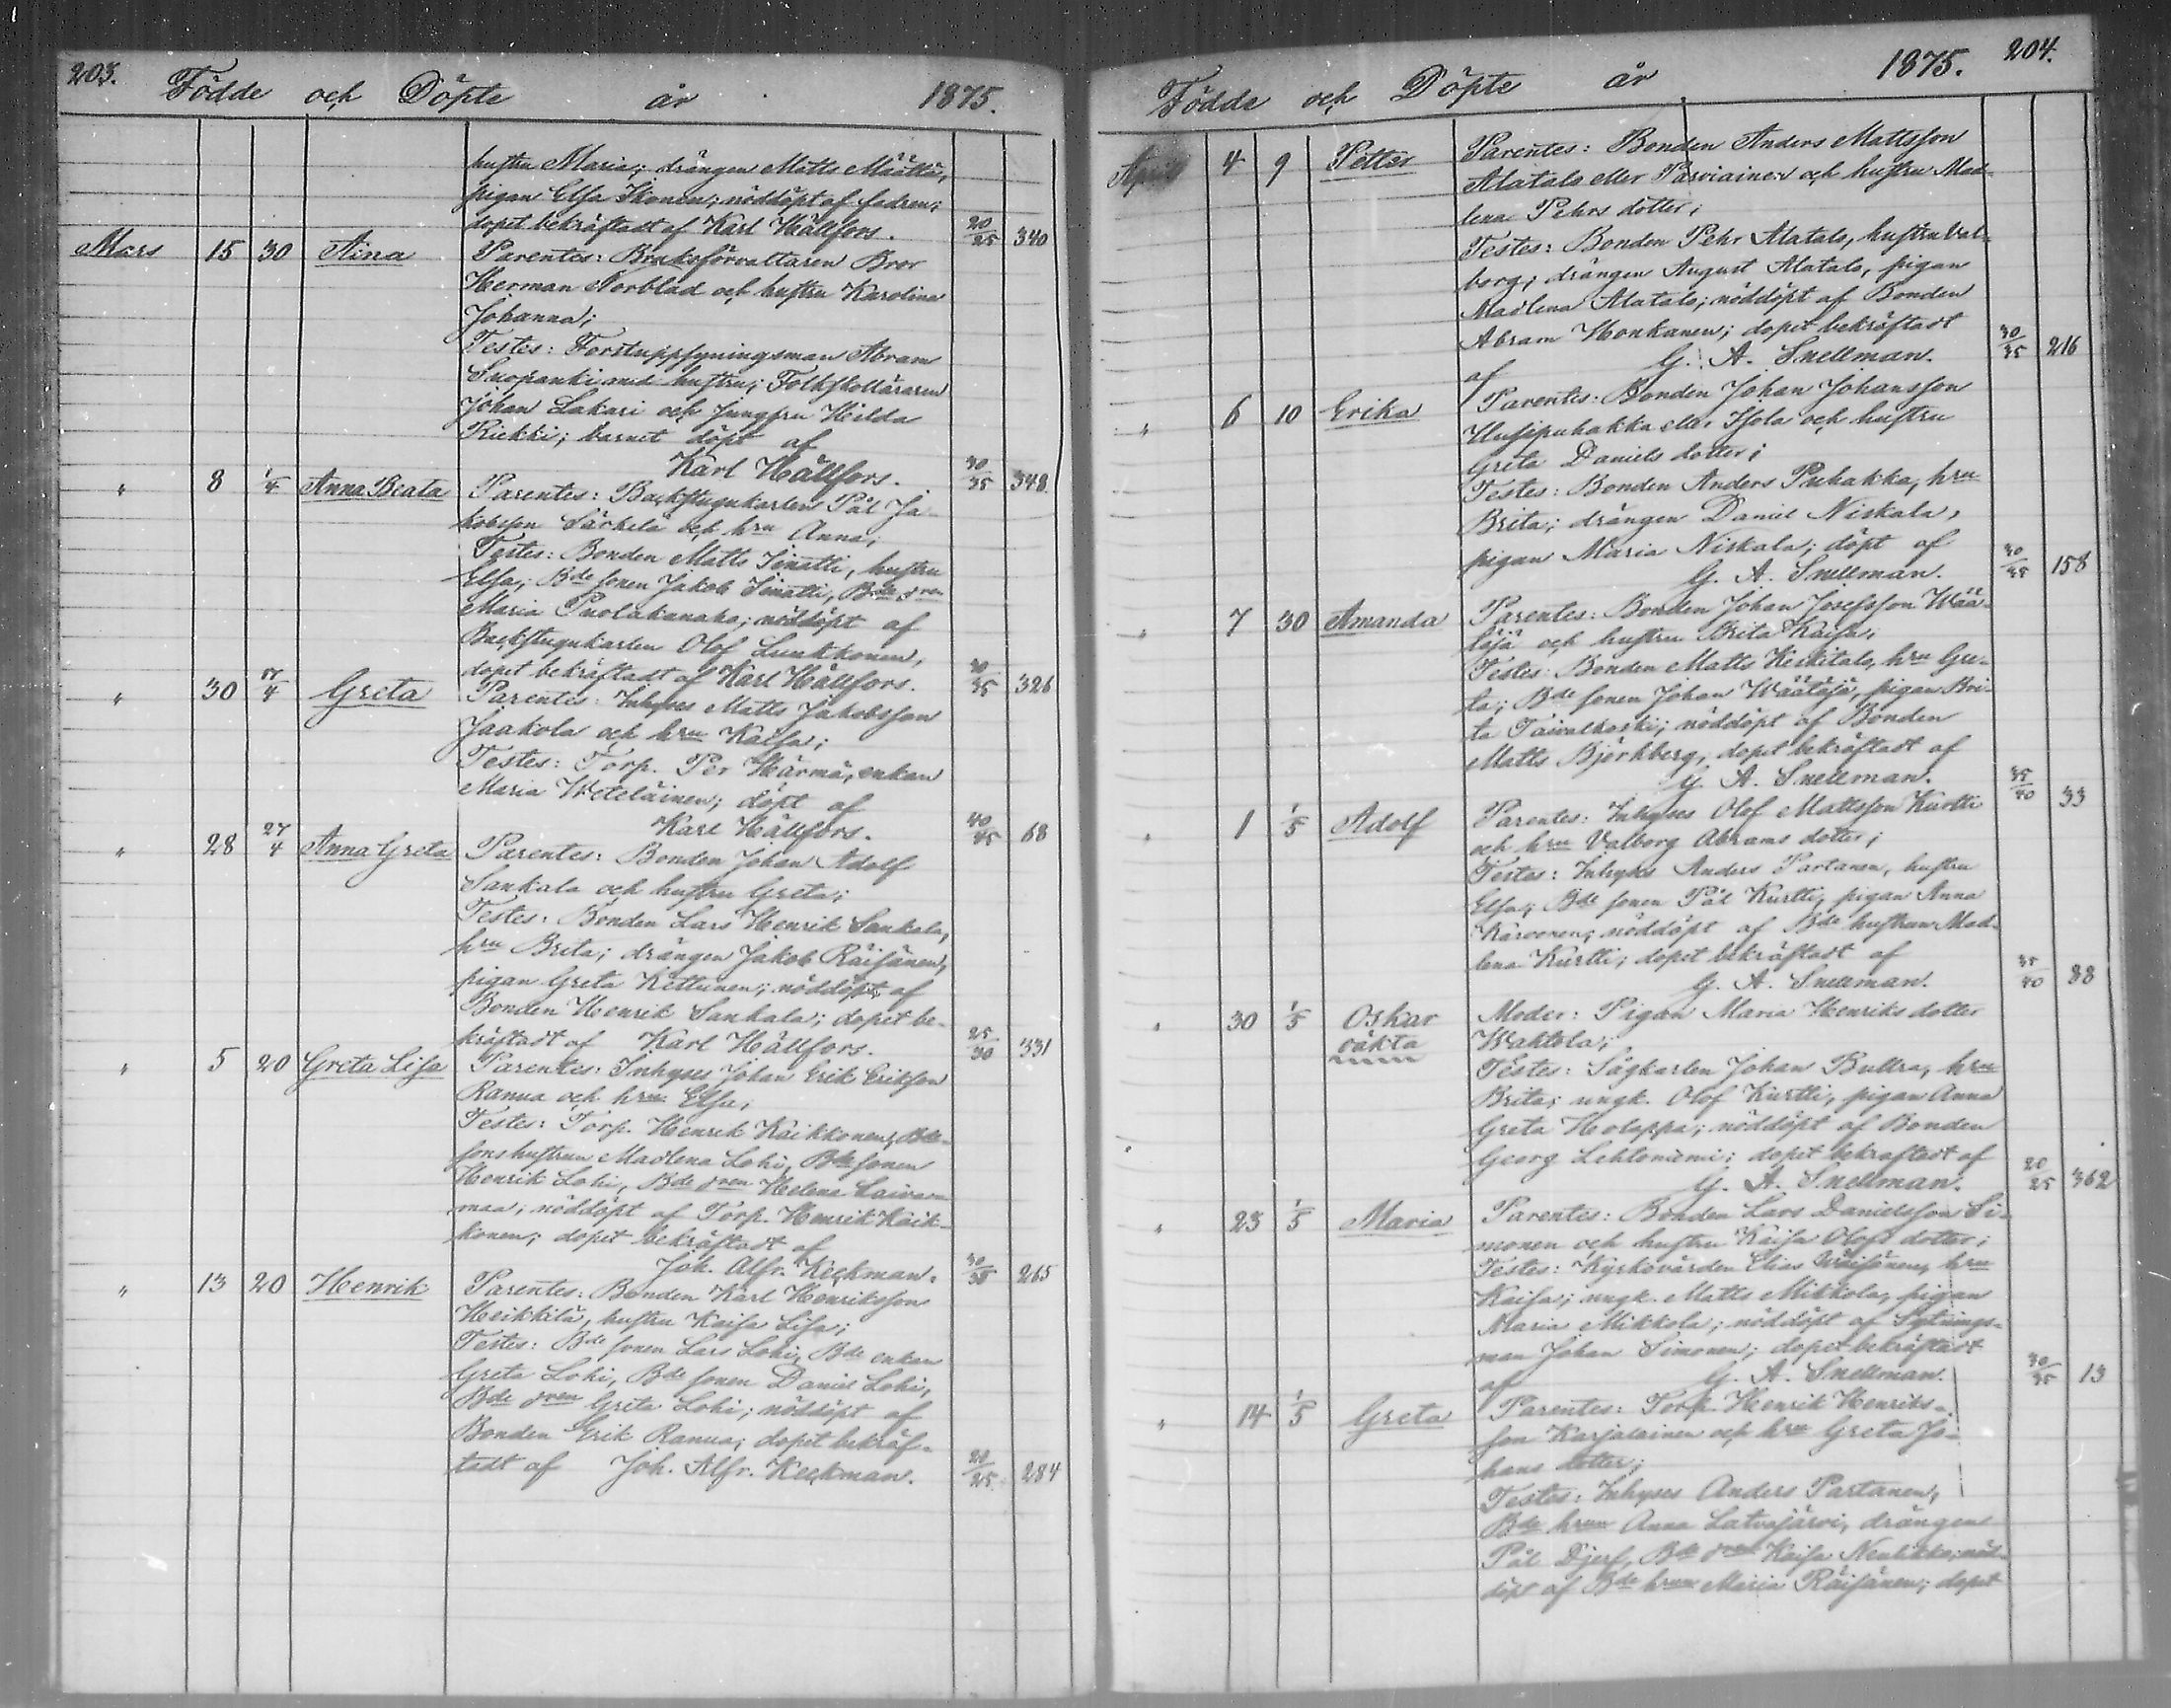 203.
Födde och Döpte år 1875.
hustru Maria; drängen Matts Määttä,
pigan Elsa Ikonen; nöddöpt af fadren;
dopet bekräftadt af Karl Hällfors. 20/25 340
Mars 15 30 Aina Parentes: Bruksförvaltaren Bror
Herman Norblad och hustru Karolina
Johanna;
Testes: Forstuppsyningsman Abram
Snopanki med hustru; Folkskolläraren
Johan Lakari och Jungfru Hilda
Riekki; barnet döpt af
Karl Hällfors. 30/35 348
" 8 1/4 Anna Beata Parentes: Backstugukarlen Pål Ja-
kobsson Särkelä och hru Anna;
Testes: Bonden Matts Iinatti, hustru
Elsa; Bde sonen Jakob Iinatti, Bde dren
Maria Puolakanaho; nöddöpt af
Backstugukarlen Olof Luukkonen,
dopet bekräftadt af Karl Hällfors. 30/35 326
" 30 /4 Greta Parentes: Inhyses Matts Jakobsson
Jaakola och hru Kaisa;
Testes: Torp. Per Härmä, enkan
Maria Weteläinen; döpt af
Karl Hällfors. 40/45 68
" 28 27/4 Anna Greta Parentes: Bonden Johan Adolf
Sankala och hustru Greta;
Testes: Bonden Lars Henrik Sankala,
hru Brita; drängen Jakob Räisänen,
pigan Greta Kettunen; nöddöpt af
Bonden Henrik Sankala; dopet be-
kräftadt af Karl Hällfors. 25/30 331
" 5 20 Greta Lisa Parentes: Inhyses Johan Erik Erikson
Ranua och hru Elsa;
Testes: Torp. Henrik Kaikkonen, Bde-
sons hustrun Madlena Lohi, Bde sonen
Henrik Lohi, Bde dren Helena Laivam
maa; nöddöpt af Torp. Henrik Kaik-
konen; dopet bekräftadt af
Joh. Alfr. Keckman. 30/35 265
" 13 20 Henrik Parentes: Bonden Karl Henriksson
Heikkilä, hustru Kaisa Lisa;
Testes: Bde sonen Lars Lohi, Bde enkan
Greta Lohi, Bde sonen Daniel Lohi,
Bde dren Greta Lohi; nöddöpt af
Bonden Erik Ranua; dopet bekräf-
tadt af Joh. Alfr. Keckman. 20/25 284
204.
Födde och Döpte år 1875.
April 4 9 Petter Parentes: Bonden Anders Mattsson
Alatalo eller Parviainen och hustru Mad-
lena Pehrs dotter;
Testes: Bonden Pehr Alatalo, hustru Val-
borg; drängen August Alatalo, pigan
Madlena Alatalo; nöddöpt af Bonden
Abram Honkanen; dopet bekräftadt
af G. A. Snellman. 30/35 216
" 6 10 Erika Parentes: Bonden Johan Johansson
Uusipuhakka eller Isola och hustru
Greta Daniels dotter;
Testes: Bonden Anders Puhakka, hru
Brita; drängen Daniel Niskala,
pigan Maria Niskala; döpt af
G. A. Snellman. 30/35 158
" 7 30 Amanda Parentes: Bonden Johan Josefsson Wää-
täjä och hustru Brita Kaisa;
Testes: Bonden Matts Keskitalo, hru Gre-
ta; Bde sonen Johan Wäätäjä, pigan Bri-
ta Taivalkoski; nöddöpt af Bonden
Matts Björkberg, dopet bekräftadt af
G. A. Snellman. 35/40 33
" 1 1/5 Adolf Parentes: Inhyses Olof Mattsson Kurtti
och hru Valborg Abrams dotter;
Testes: Inhyses Anders Partanen, hustru
Elsa; Bde sonen Pål Kurtti, pigan Anna
Karvonen; nöddöpt af Bde hustrun Mad-
lena Kurtti; dopet bekräftadt af
G. A. Snellman. 35/40 88
" 30 1/5 Oskar Moder: Pigan Maria Henriks dotter
oäkta Wahtola;
Testes: Sågkarlen Johan Bullra, hru
Brita; ungk. Olof Kurtti, pigan Anna
Greta Holappa; nöddöpt af Bonden
Georg Lehtoniemi; dopet bekräftadt af
G. A. Snellman. 20/25 362
" 23 1/5 Maria Parentes: Bonden Lars Danielsson Si-
monen och hustru Kaisa Olofs dotter;
Testes: Kyrkovärden Elias Väisänen, hru
Kaisa; ungk. Matts Mikkola, pigan
Maria Mikkola; nöddöpt af Sytnings-
man Johan Simonen; dopet bekräftadt
af G. A. Snellman. 30/35 13
" 14 1/5 Greta Parentes: Torp. Henrik Henriks-
son Karjalainen och hru Greta Jo-
hans dotter;
Testes: Inhyses Anders Partanen,
Bde hrun Anna Latvajärvi, drängen
Pål Djerf, Bde dren Kaisa Neulikko; nöd-
döpt af Bde hrun Maria Räisänen; dopet